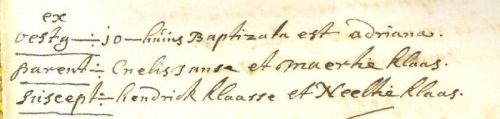 ex
vestg -:- 10 - huius Baptizata est adriana.
parent -:- Cnelis Janse et maerke klaas.
suscept -:- hendrick klaasse et Neeltie klaas.